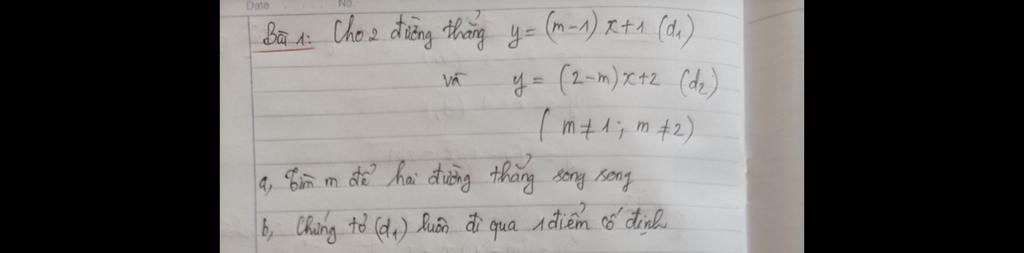 Date No.
Bài 1: Cho 2 đường thẳng y = (m-1) x+1 (d₁)
và y = (2-m)x+2 (d₂)
( m ≠ 1 ; m ≠ 2)
a, Tìm m để hai đường thẳng song song
b, Chứng tỏ (d₁) luôn đi qua 1 điểm cố định